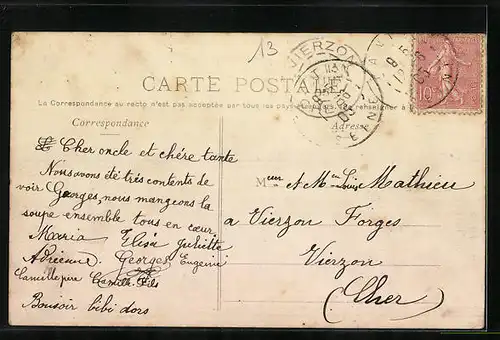 13
VIERZON
CARTE POSTALE
La Correspondance au recto n'est pas acceptée par tous les pays
Correspondance
Adresse
10
Cher oncle et chère tante
Nous avons été très contents de
voir Georges, nous mangeons la
soupe ensemble tous en cœur,
Maria Elisa Juliette
Adrienne Georges Eugénie
Camille père Camille Fils
Bonsoir bibi dors
M eur et M me Mathieu
a Vierzon Forges
Vierzon
(Cher)